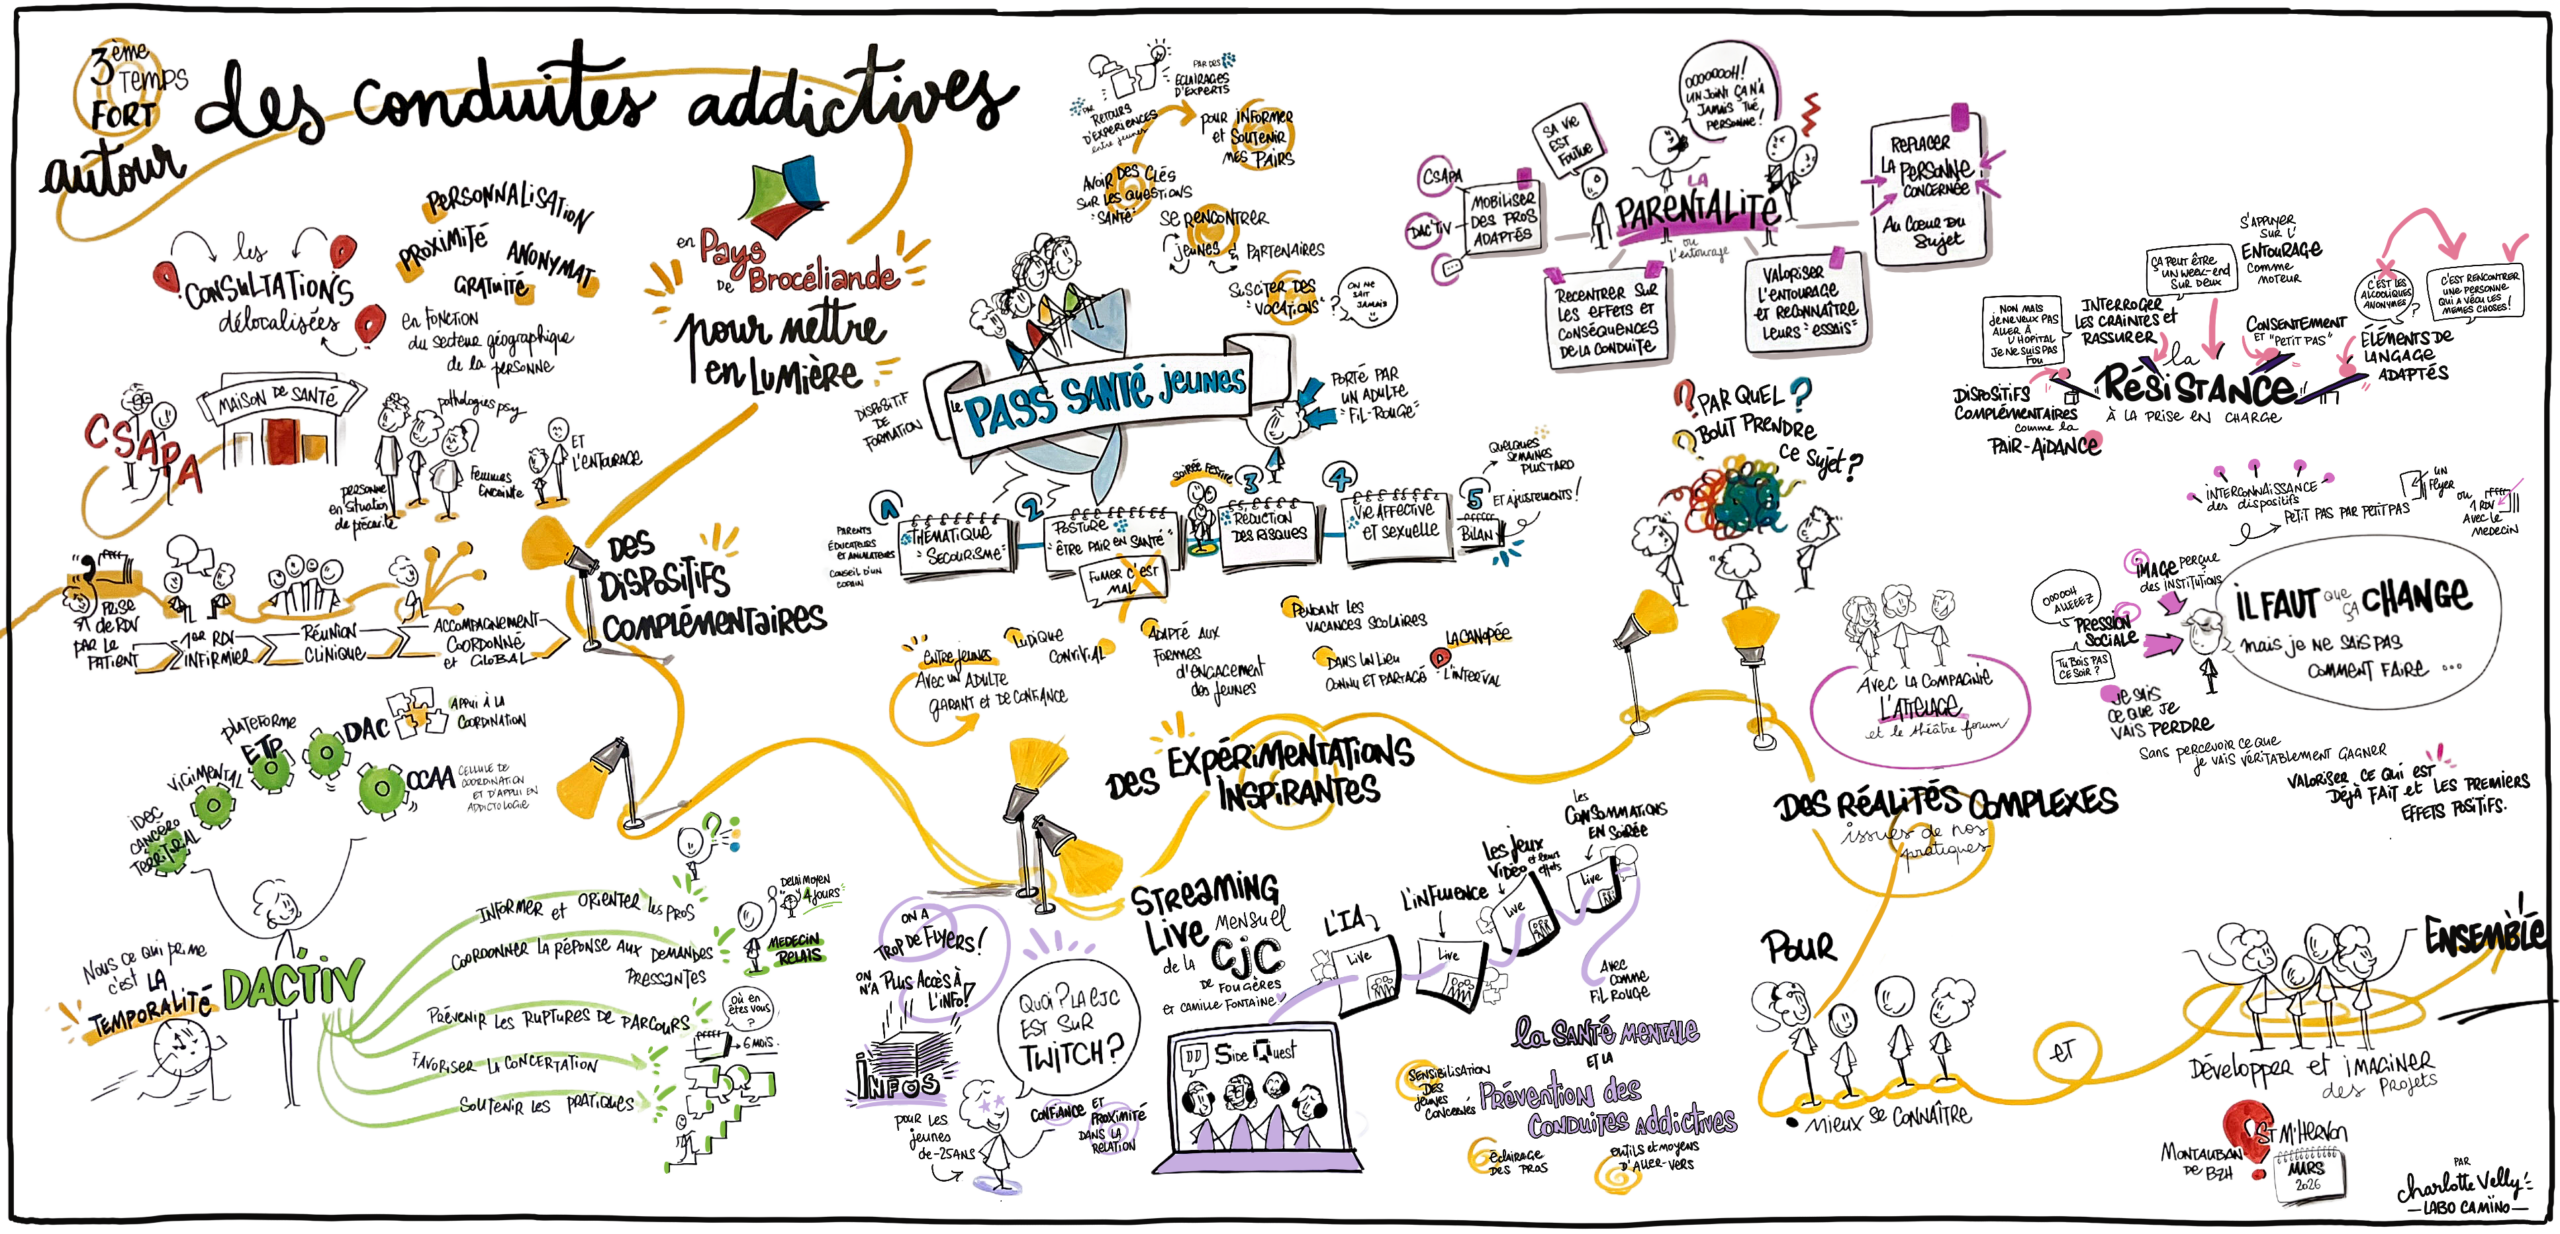 3ème
TEMPS
FORT
autour
des conduites addictives
en Pays
de Brocéliande
pour mettre
en Lumière
les
CONSULTATIONS
délocalisées
PERSONNALISATION
PROXIMITÉ
ANONYMAT
GRATUITÉ
en fonction
du secteur géographique
de la personne
CSAPA
MAISON DE SANTÉ
pathologies psy
personne
en situation
de précarité
Femmes
Enceinte
ET
L'ENTOURAGE
PRISE
de RDV
PAR LE
PATIENT
1er RDV
INFIRMIER
Réunion
CLINIQUE
ACCOMPAGNEMENT
COORDONNÉ
et GLOBAL
DES
DISPOSITIFS
COMPLÉMENTAIRES
IDEC
CANCÉRO
TERRITORIAL
VIGIMENTAL
PLATEFORME
ETP
DAC
APPUI À LA
COORDINATION
OCAA
CELLULE DE
COORDINATION
ET D'APPUI EN
ADDICTOLOGIE
Nous ce qui prime
c'est LA
TEMPORALITÉ
DACTIV
INFORMER et ORIENTER les PROS
COORDONNER LA RÉPONSE AUX DEMANDES
PRESSANTES
PRÉVENIR LES RUPTURES DE PARCOURS
FAVORISER LA CONCERTATION
SOUTENIR LES PRATIQUES
?
DELAI MOYEN
4 JOURS
MEDECIN
RELAIS
où en
êtes vous
?
6 MOIS.
PAR
RETOURS
D'EXPERIENCES
entre jeunes
PAR DES
ECLAIRAGES
D'EXPERTS
pour INFORMER
et SOUTENIR
MES PAIRS
AVOIR DES CLÉS
SUR LES QUESTIONS
"SANTÉ"
SE RENCONTRER
JEUNES & PARTENAIRES
SUSCITER DES
"VOCATIONS"?
ON NE
SAIT
JAMAIS
DISPOSITIF
DE
FORMATION
le PASS SANTÉ jeunes
PORTÉ PAR
UN ADULTE
"FIL-ROUGE"
PARENTS
ÉDUCATEURS
ET ANIMATEURS
CONSEIL D'UN
COPAIN
1
THÉMATIQUE
"SECOURISME"
2
POSTURE
"ÊTRE PAIR EN SANTÉ"
FUMER C'EST
MAL
SOIRÉE FESTIVE
3
RÉDUCTION
DES RISQUES
4
VIE AFFECTIVE
et sexuelle
5
BILAN
QUELQUES
SEMAINES
PLUS TARD
ET AJUSTEMENTS!
ENTRE JEUNES
AVEC UN ADULTE
GARANT ET DE CONFIANCE
LUDIQUE
CONVIVIAL
ADAPTÉ AUX
FORMES
d'ENGAGEMENT
des jeunes
PENDANT LES
VACANCES SCOLAIRES
DANS UN LIEU
CONNU ET PARTAGÉ
LA CANOPÉE
L'INTERVAL
DES EXPÉRIMENTATIONS
INSPIRANTES
ON A
TROP DE FLYERS!
ON
N'A PLUS ACCÈS À
L'INFO!
INFOS
pour les
jeunes
de -25ANS
QUOI? LA CJC
EST SUR
TWITCH?
CONFIANCE ET
PROXIMITÉ
DANS LA
RELATION
STREAMING
Live MENSUEL
de la CJC
DE FOUGÈRES
et CAMILLE FONTAINE!
Side Quest
L'IA
Live
L'INFLUENCE
Live
Les jeux
VIDÉO et leurs
effets
Live
les
CONSOMMATIONS
EN SOIRÉE
Live
AVEC
COMME
FIL ROUGE
la SANTÉ MENTALE
ET LA
Prévention des
CONDUITES Addictives
SENSIBILISATION
DES
JEUNES
CONCERNÉS
éclairage
DES PROS
OUTILS et MOYENS
D'ALLER-VERS
LA
PARENTALITÉ
ou
l'entourage
CSAPA
DACTIV
...
MOBILISER
DES PROS
ADAPTÉS
SA VIE
EST
FOUTUE
OOOOOOOH!
UN JOINT ÇA N'A
JAMAIS TUÉ
PERSONNE!
REPLACER
LA PERSONNE
CONCERNÉE
AU CŒUR DU
SUJET
RECENTRER SUR
LES EFFETS ET
CONSÉQUENCES
DE LA CONDUITE
VALORISER
L'ENTOURAGE
et RECONNAÎTRE
LEURS "ESSAIS"
? PAR QUEL ?
? BOUT PRENDRE
CE SUJET?
la
RÉSISTANCE
À LA PRISE EN CHARGE
NON MAIS
JE NE VEUX PAS
ALLER À
L'HÔPITAL
JE NE SUIS PAS
FOU
INTERROGER
LES CRAINTES et
RASSURER
ÇA PEUT ÊTRE
UN WEEK-END
SUR DEUX
S'APPUYER
SUR L'
ENTOURAGE
COMME
MOTEUR
CONSENTEMENT
ET "PETIT PAS"
C'EST LES
ALCOOLIQUES
ANONYMES
?
C'EST RENCONTRER
UNE PERSONNE
QUI A VÉCU LES
MÊMES CHOSES!
ÉLÉMENTS DE
LANGAGE
ADAPTÉS
DISPOSITIFS
COMPLÉMENTAIRES
COMME LA
PAIR-AIDANCE
INTERCONNAISSANCE
des dispositifs
PETIT PAS PAR PETIT PAS
UN
Flyer
ou
1 RDV
AVEC LE
MEDECIN
IMAGE PERÇUE
des INSTITUTIONS
OOOOH
ALLEEEZ
PRESSION
SOCIALE
TU BOIS PAS
CE SOIR?
JE SAIS
CE QUE JE
VAIS PERDRE
Sans percevoir ce que
je VAIS VÉRITABLEMENT GAGNER
IL FAUT que ÇA CHANGE
mais je NE SAIS PAS
COMMENT FAIRE ...
VALORISER CE QUI EST
DÉJÀ FAIT et LES PREMIERS
EFFETS POSITIFS.
AVEC LA COMPAGNIE
L'ATTELAGE
et le théâtre forum
DES RÉALITÉS COMPLEXES
issues de nos
pratiques
POUR
• MIEUX SE CONNAÎTRE
ET
ENSEMBLE
Développer et imaginer
des projets
MONTAUBAN
DE BZH
ST M'HERVON
MARS
2026
PAR
charlotte Velly
— LABO CAMINO —